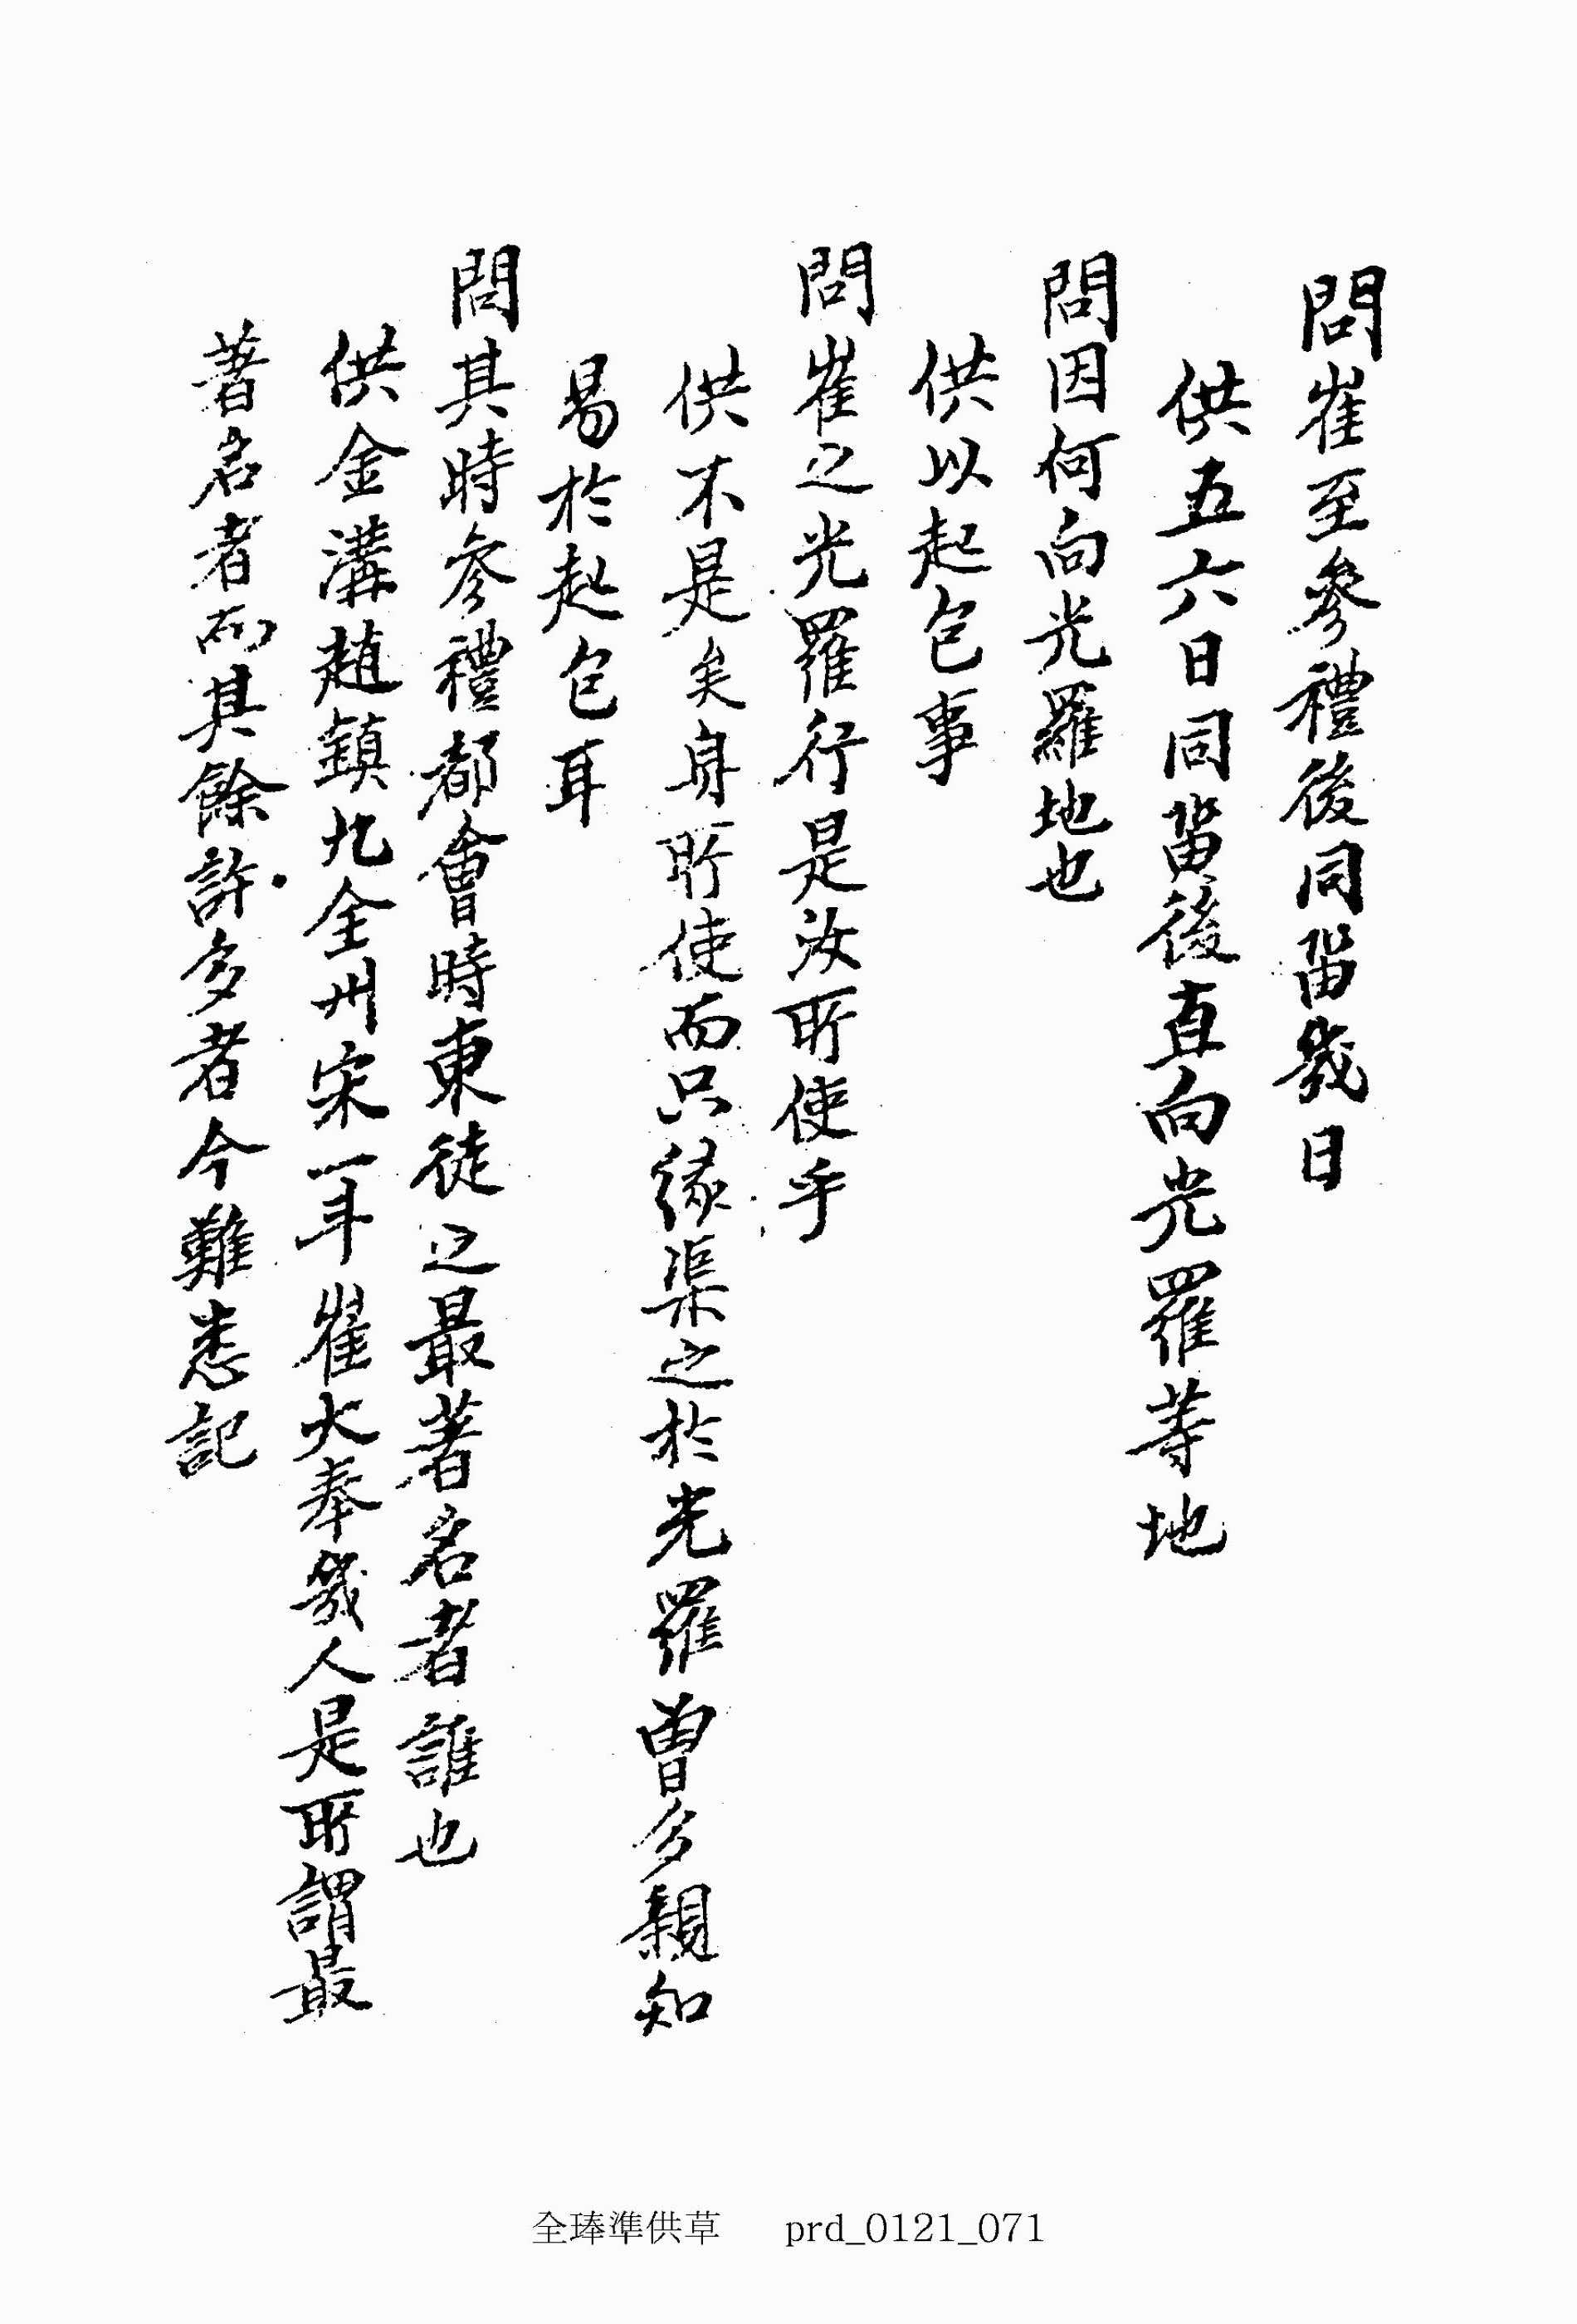 問崔至參禮後同畱幾日
供五六日同畱後直向光羅等地
問因何向光羅地也
供以起包事
問崔之光羅行是汝所使乎
供不是矣身所使而只緣渠之於光羅曾多親知
易於起包耳
問其時參禮都會時東徒之最著名者誰也
供金溝趙鎭九全州宋一斗崔大奉幾人是所謂最
著名者而其餘許多者今難悉記
全琫準供草 prd_0121_071